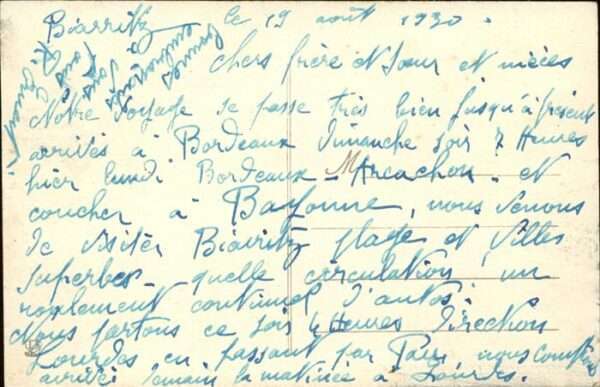 Biarritz le 19 août 1930.
Chers frère et sœur et nièces
Notre voyage se passe très bien jusqu'à présent
arrivés à Bordeaux Dimanche soir 7 Heures
hier lundi Bordeaux - Arcachon - et
coucher à Bayonne, nous venons
de visiter Biarritz plage et villes
superbes - quelle circulation un
roulement continuel d'autos.
Nous partons ce soir 4 Heures Direction
Lourdes en passant par Pau, nous comptons
arriver demain la matinée à Lourdes.
Bonnes
à tous